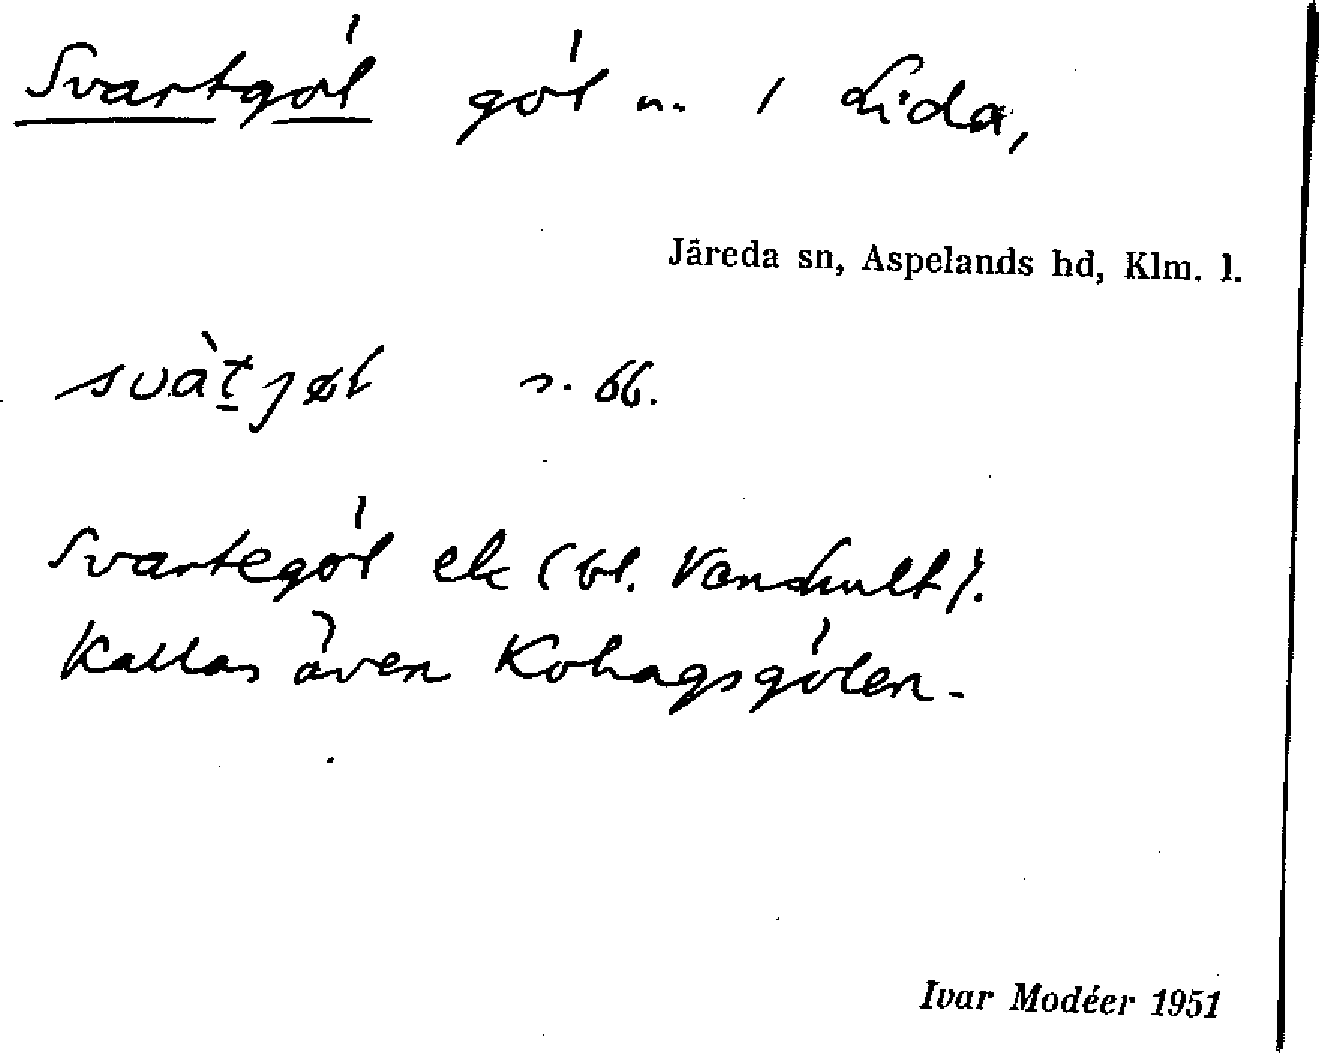 Svartgöl göl n. / Lida,
Järeda sn, Aspelands hd, Klm. l.
svàt̲jøl s. 66.
Svartegöl ek (bl. Vandhult).
Kallas även Kohagsgölen.
Ivar Modéer 1951